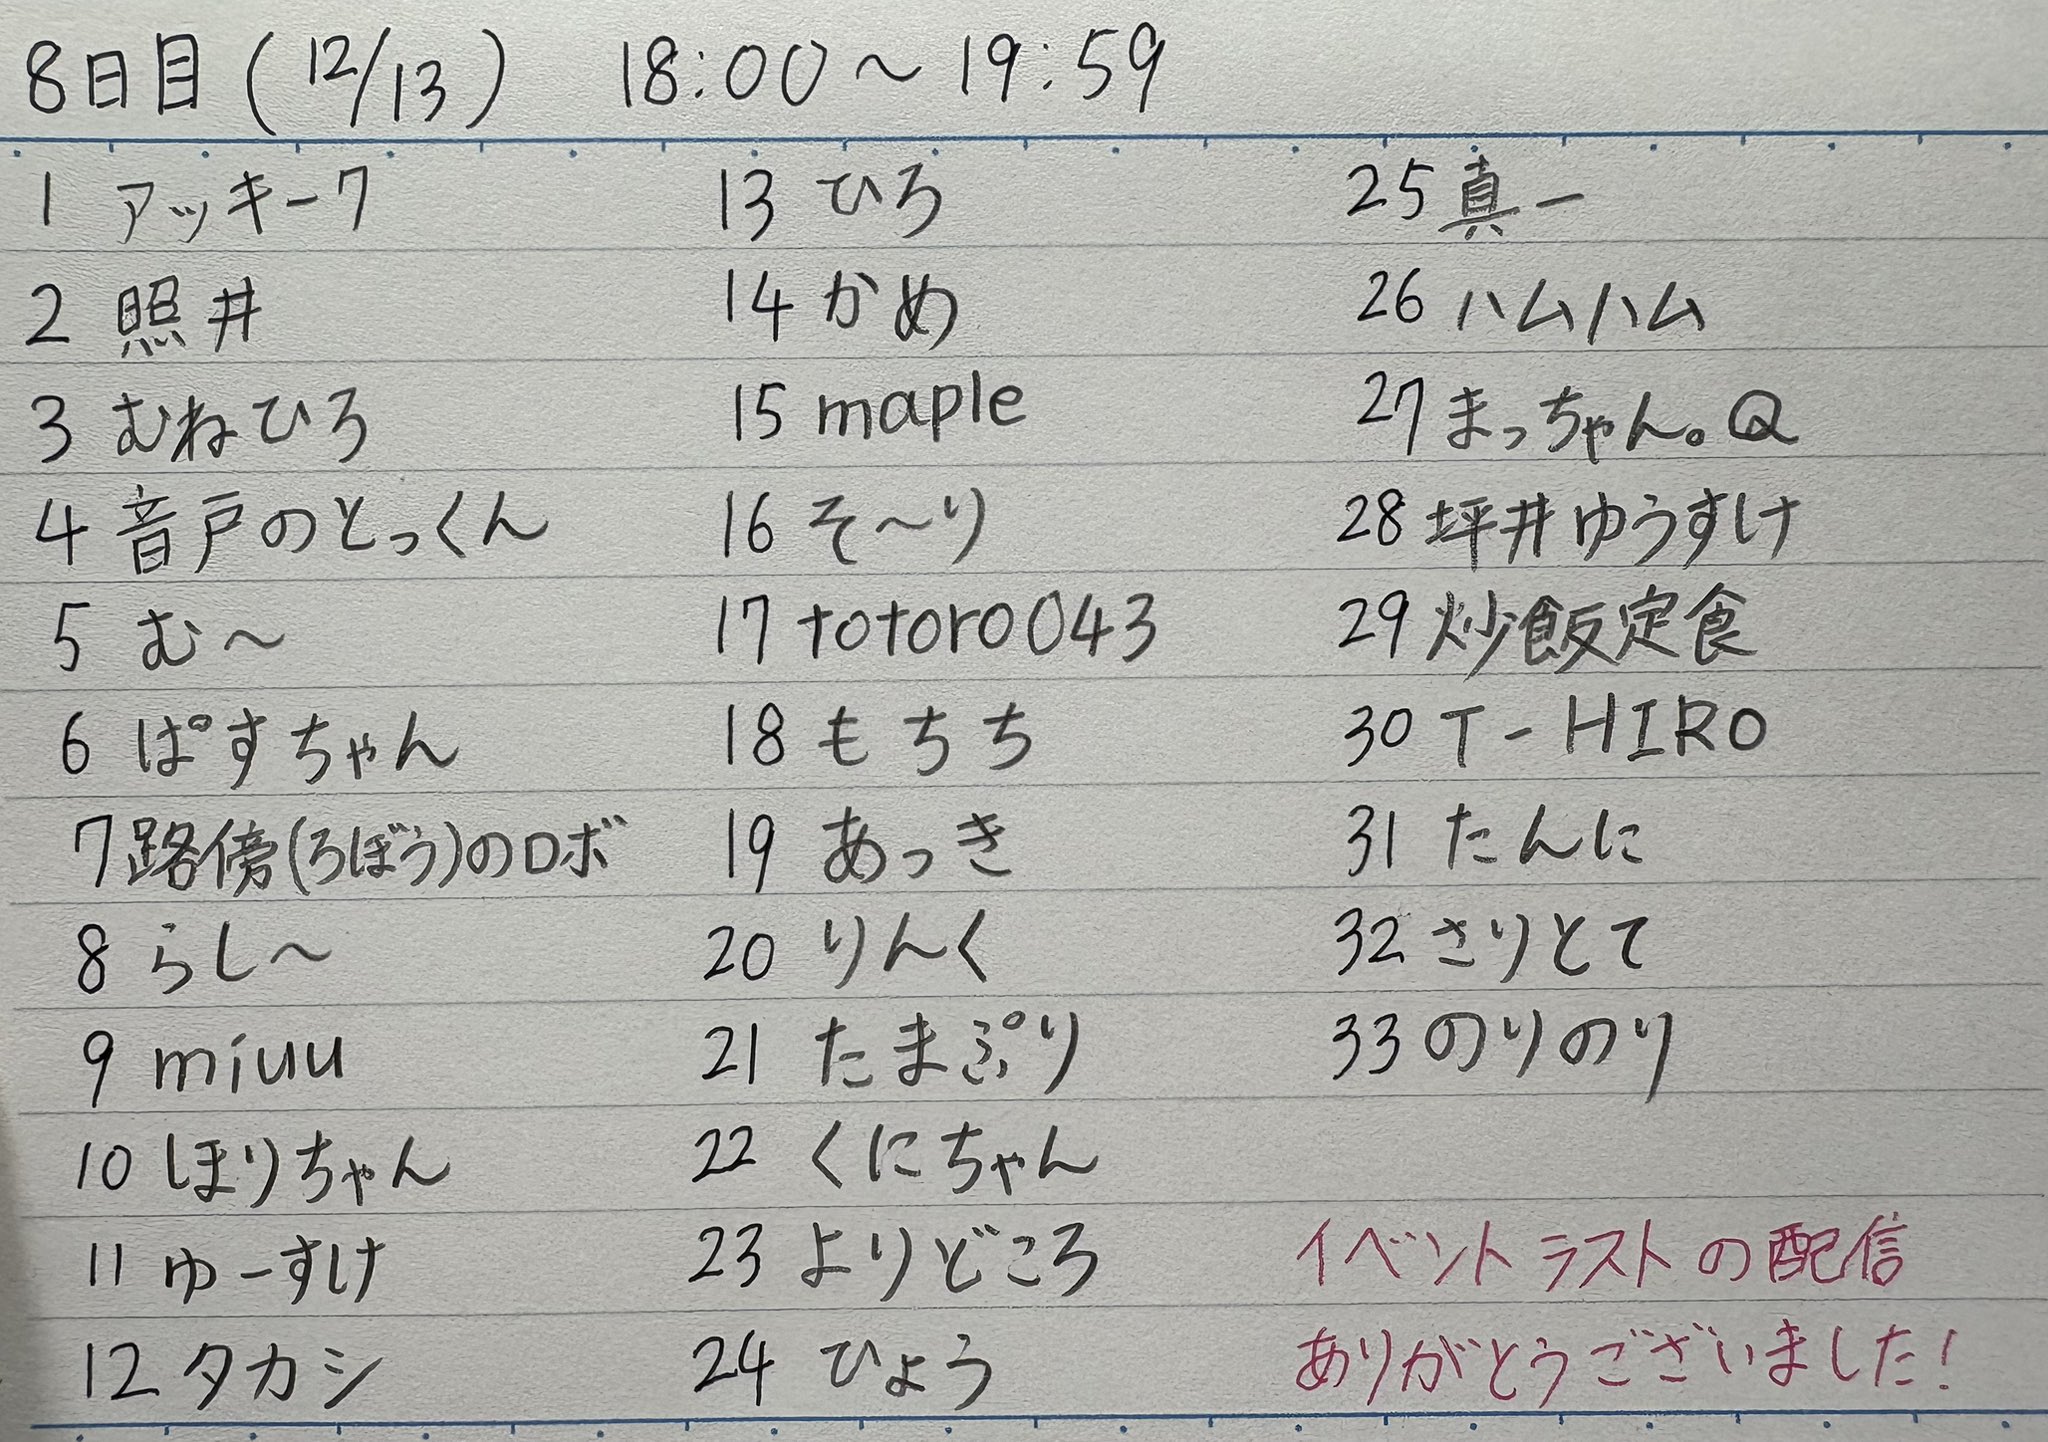 8日目(12/13) 18:00〜19:59
1 アッキー7
2 照井
3 むねひろ
4 音戸のとっくん
5 む〜
6 ぱすちゃん
7 路傍(ろぼう)のロボ
8 らし〜
9 miuu
10 ほりちゃん
11 ゆーすけ
12 タカシ
13 ひろ
14 かめ
15 maple
16 そ〜り
17 totoro043
18 もちち
19 あっき
20 りんく
21 たまぷり
22 くにちゃん
23 よりどころ
24 ひょう
25 真一
26 ハムハム
27 まっちゃん。Q
28 坪井ゆうすけ
29 炒飯定食
30 T-HIRO
31 たんに
32 さりとて
33 のりのり
イベントラストの配信
ありがとうございました!